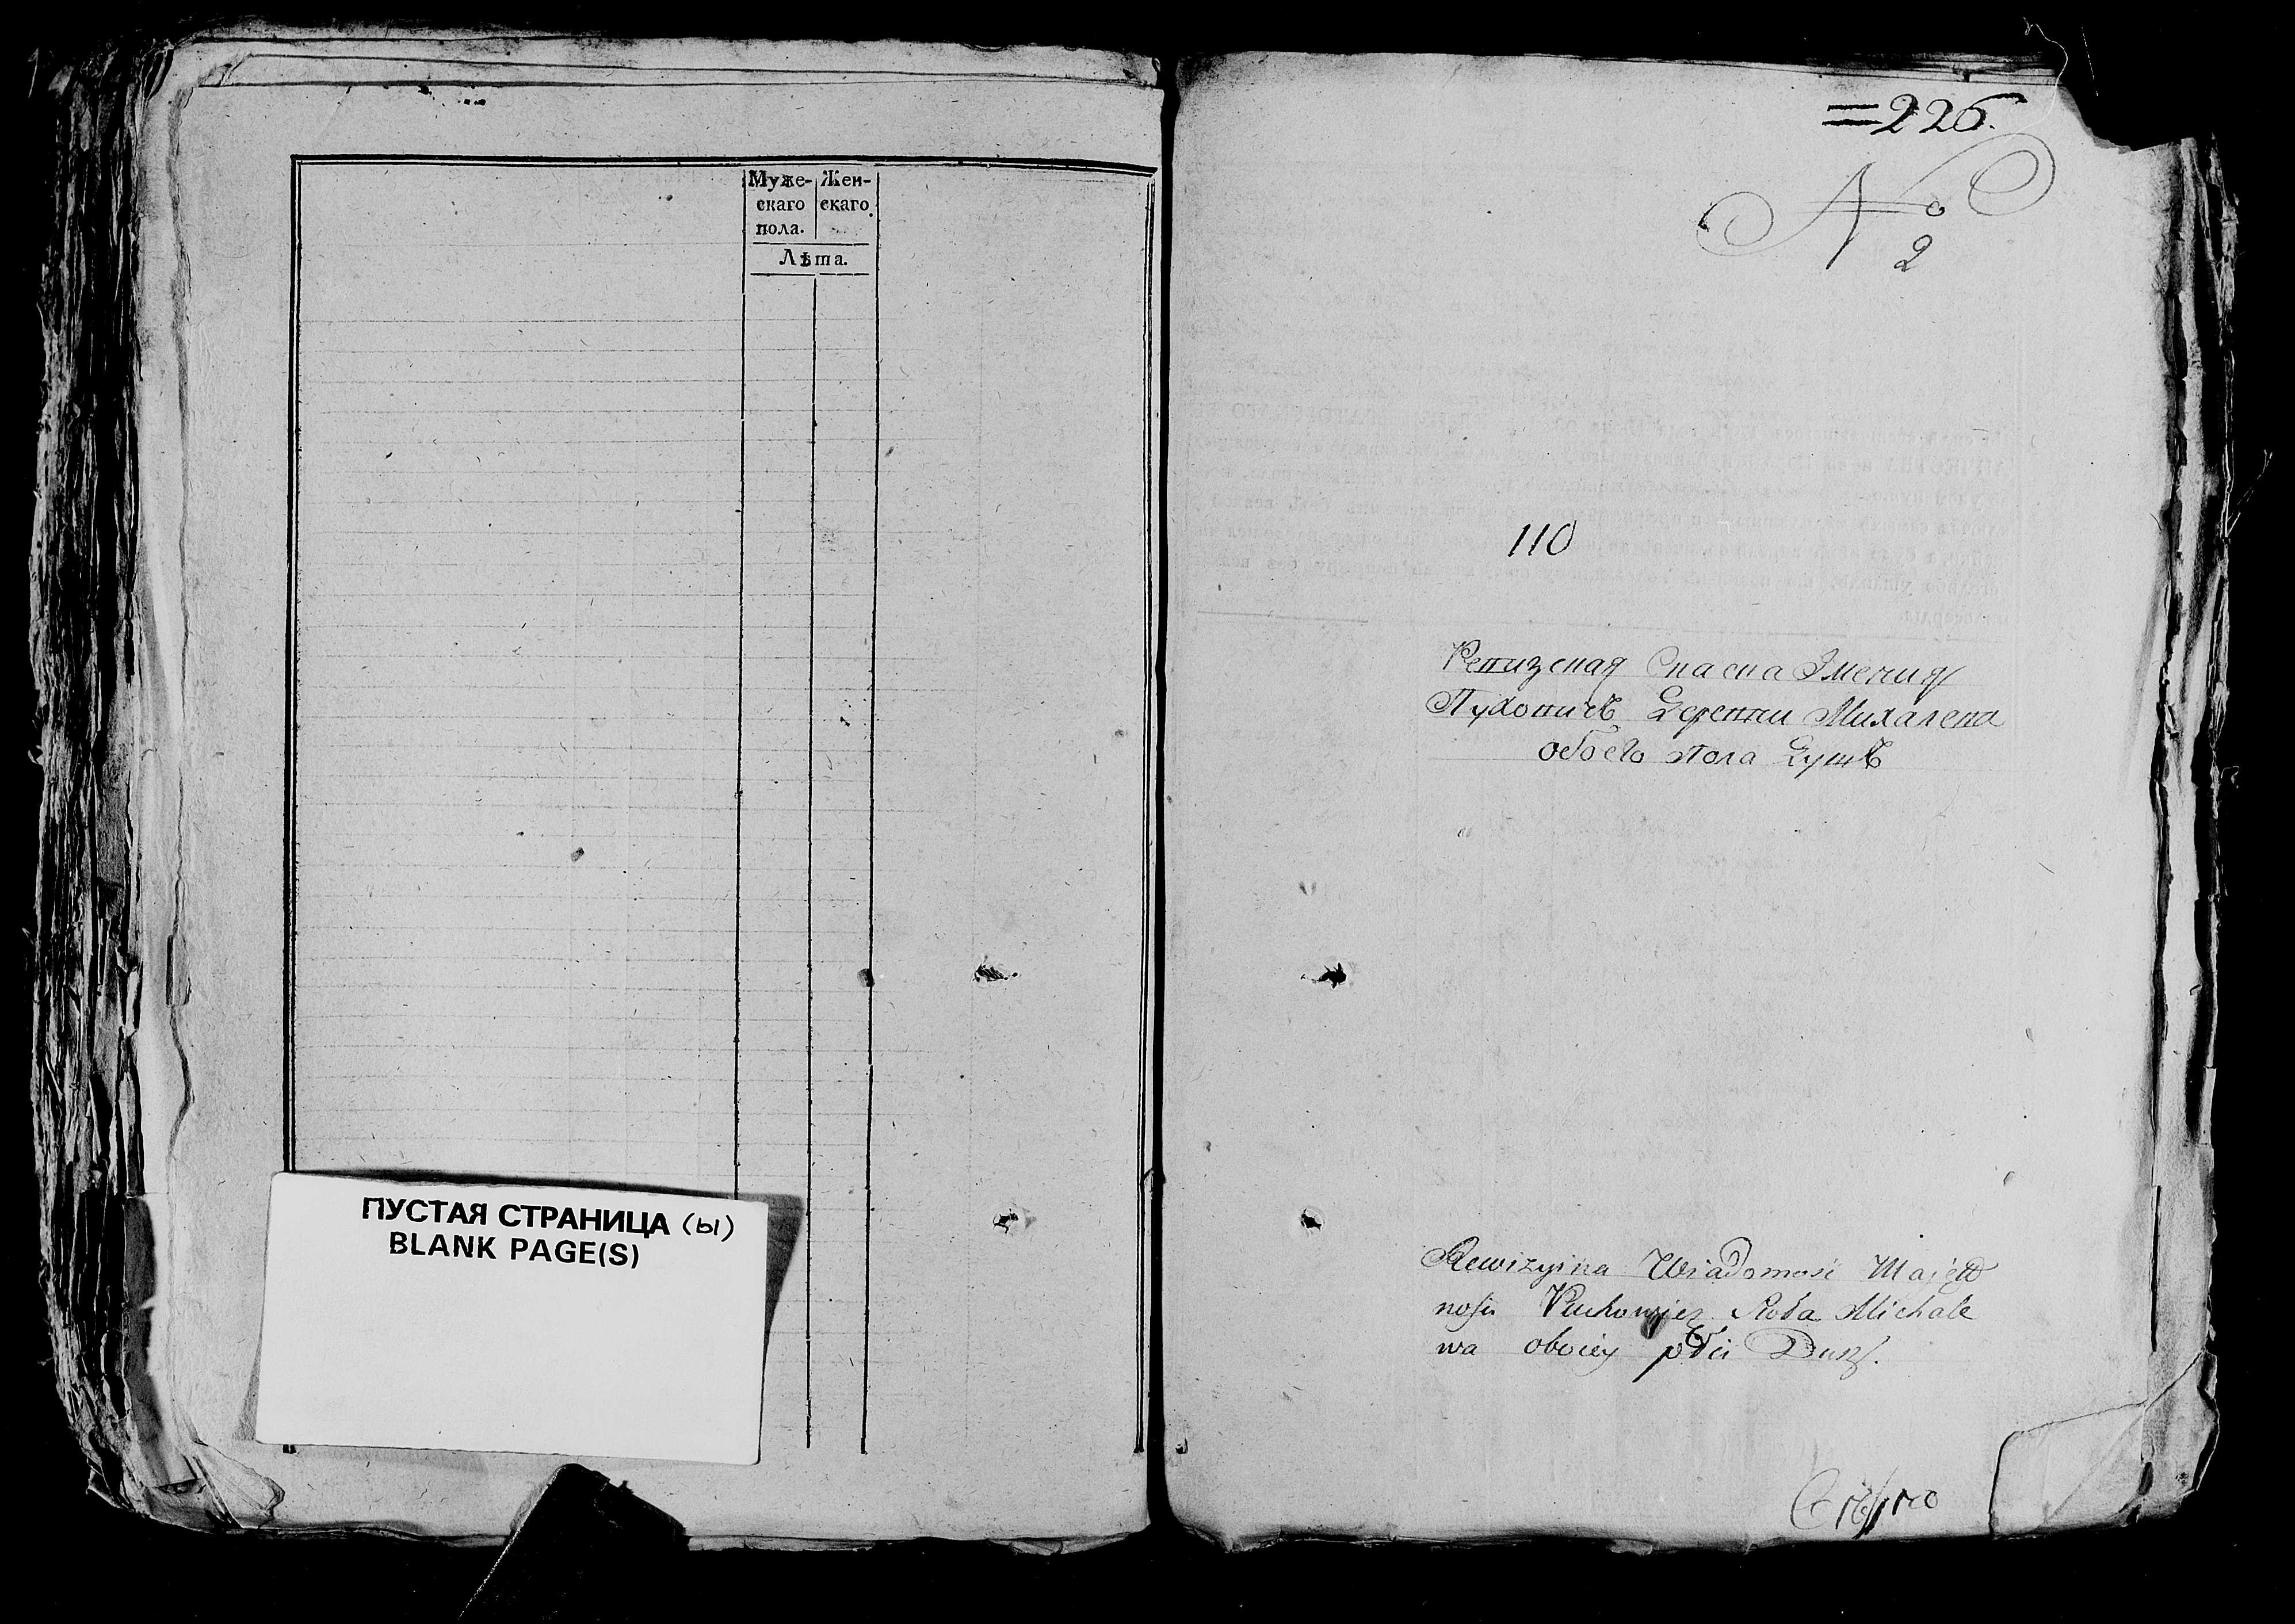 Муже-
скаго
пола.
Жен-
скаго
Лѣта.
ПУСТАЯ СТРАНИЦА (ы)
BLANK PAGE(S)
=226.
№
2
110
Ревизская Скаска Имения
Пуховичъ Деревни Михалева
обоего пола Душъ
Rewizyina Wiadomość Majęt
nośći Puchowicz Sioła Michale
wa oboiey płci Dusz.